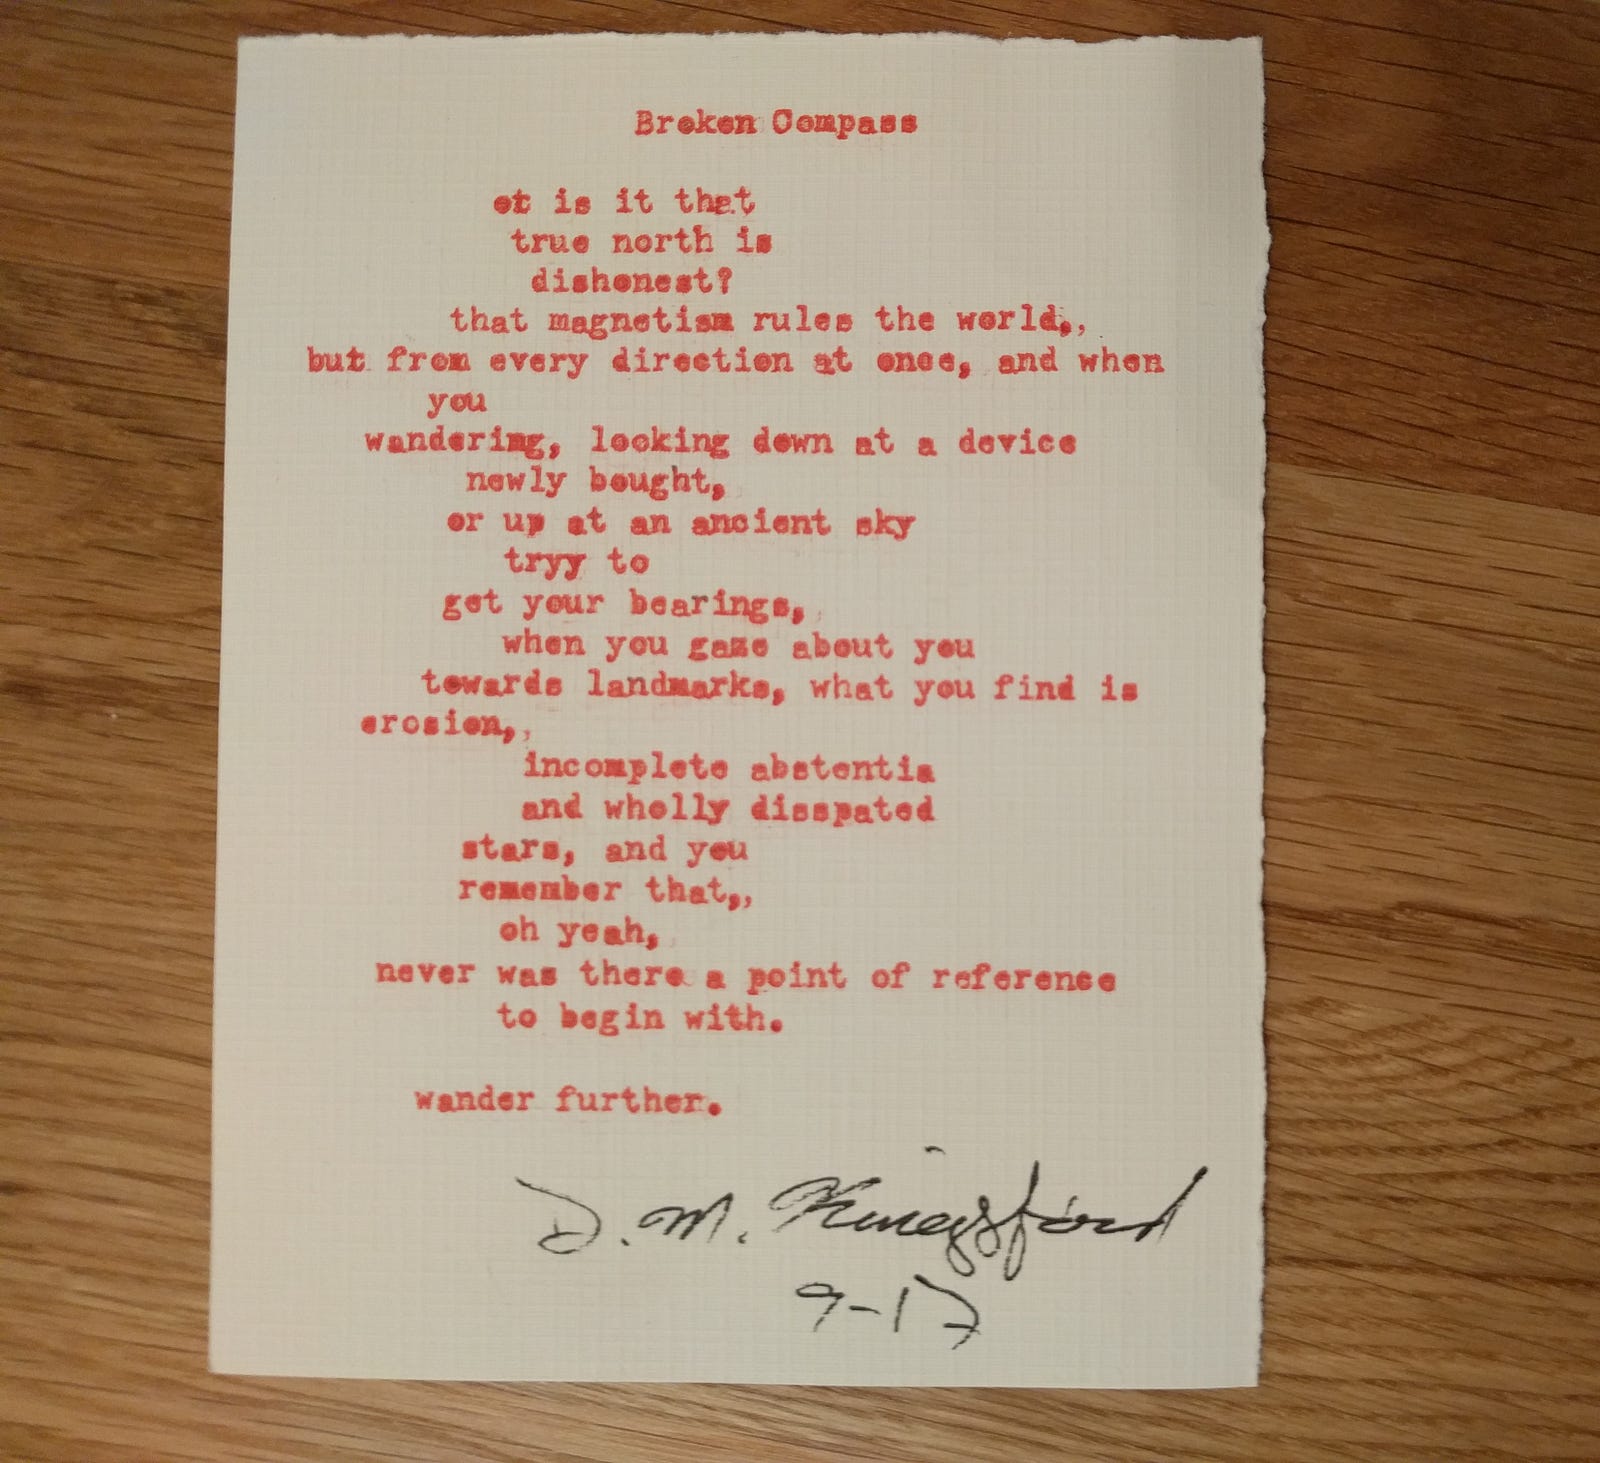 Broken Compass
or is it that
true north is
dishonest?
that magnetism rules the world,,
but from every direction at once, and when
you
wandering, looking down at a device
newly bought,
or up at an ancient sky
tryy to
get your bearings,
when you gaze about you
towards landmarks, what you find is
erosion,,
incomplete abstentia
and wholly disspated
stars, and you
remember that,,
oh yeah,
never was there a point of reference
to begin with.
wander further.
D. M. Kingsford
9-17